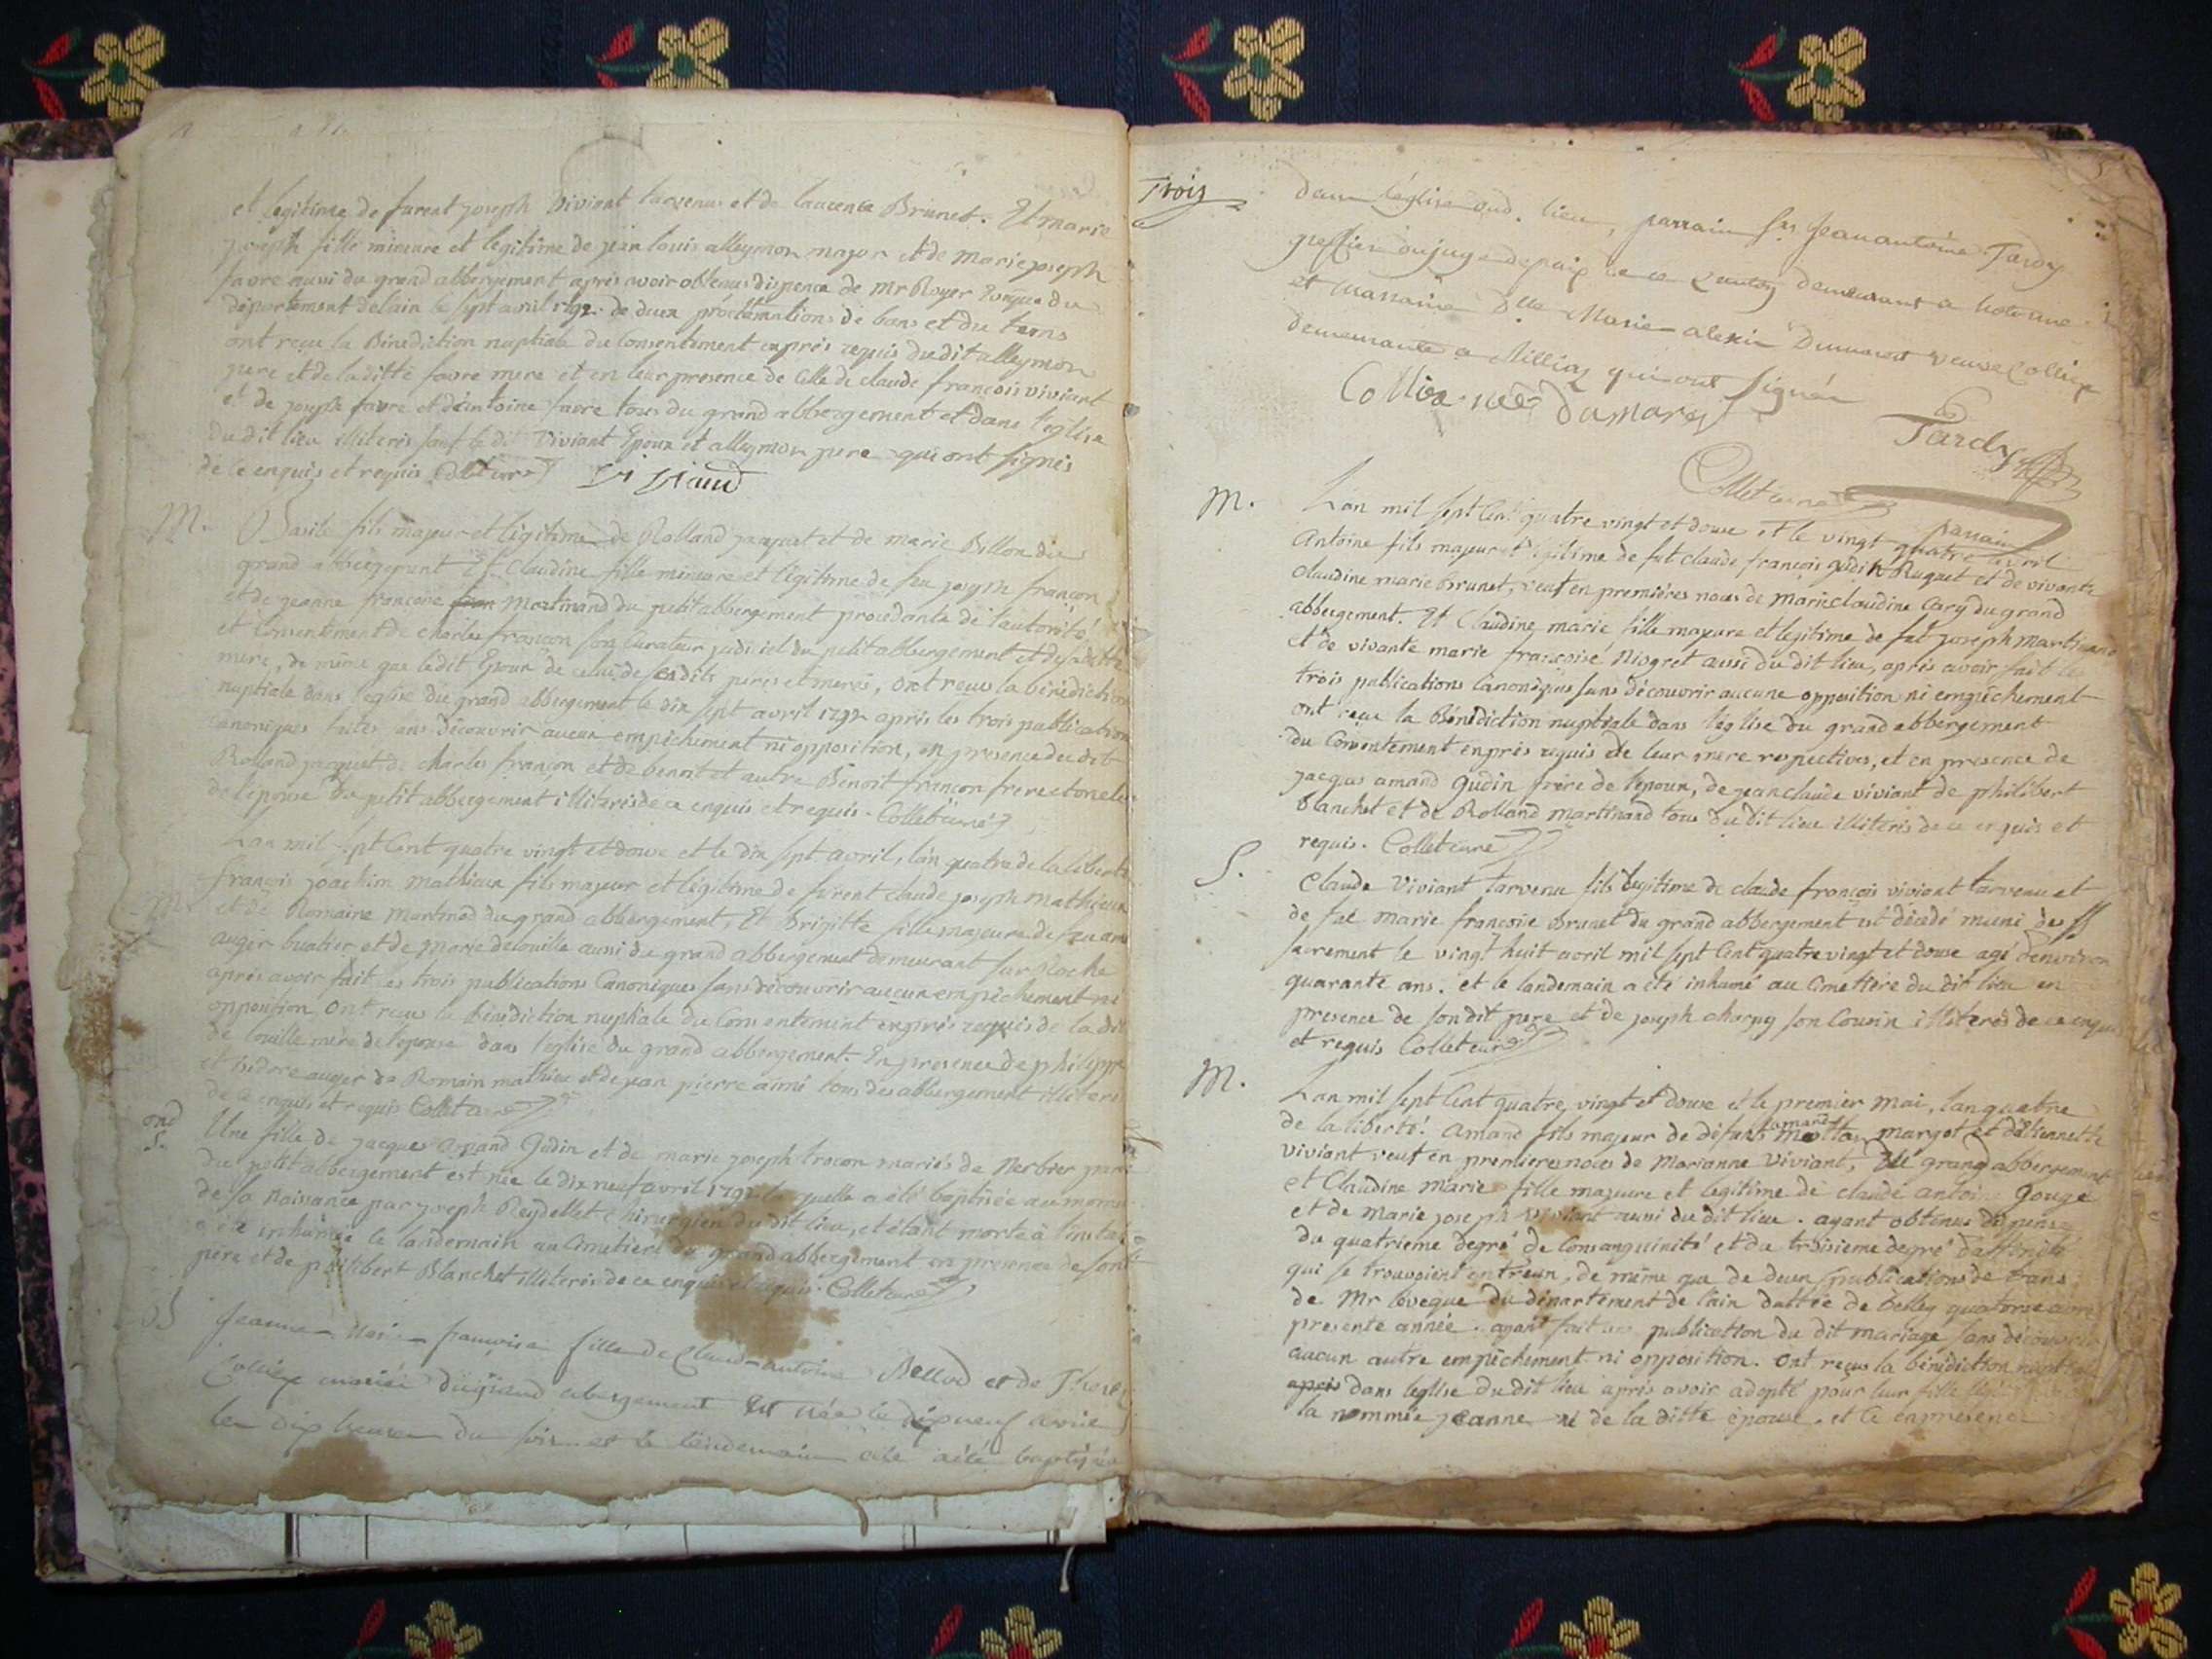 et legitime de furent joseph Viviant tarvenus et de laurence Brunet. Et marie
joseph fille mineure et legitime de jean louis alleymon major et de marie joseph
favre aussi du grand abbergement apres avoir obtenus dispence de Mr Royer Eveque du
departement de lain le sept avril 1792. de deux proclamations de bans et du tems
ont reçu la Bénédiction nuptiale du Consentement exprès requis du dit alleymon
pere et de la ditte favre mere et en leur presence de Celle de claude françois viviant
et de joseph favre et d'antoine favre tous du grand abbergement et dans l'eglise
du dit lieu illiterés sauf le dit Viviant Epoux et alleymon pere qui ont signés
de ce enquis et requis Collet curé Viviand
M. Basile fils majeur et légitime de Rolland jacquet et de marie Billon du
grand abbergement Et Claudine fille mineure et légitime de feu joseph françon
et de jeanne françoise Martinand du petit abbergement procedante de l'autorité
et Consentement de charles françon son Curateur judiciel du petit abbergement et de sa ditte
mere, de même que le dit Epoux de celui de ses dits peres et meres, Ont reçus la bénédiction
nuptiale dans l'eglise du grand abbergement le dix sept avril 1792 après les trois publications
canoniques faites sans découvrir aucun empêchement ni opposition, en presence du dit
Rolland jacquet de charles françon et de benoit et autre Benoit françon frere et oncle
de l'epouse du petit abbergement illiterés de ce enquis et requis. Collet curé
Lan mil sept Cent quatre vingt et douse et le dix sept avril, l'an quatre de la liberté
M. françois joachim Mathieux fils majeur et légitime de furent claude joseph Mathieux
et de Romaine Martinod du grand abbergement, Et Brigitte fille majeure de feu
auger buatier et de Marie delouille aussi du grand abbergement demeurant sur Roche
après avoir fait les trois publications Canoniques sans découvrir aucun empêchement ni
opposition Ont reçus la bénédiction nuptiale du Consentement exprès requis de la dit
de louille mère de l'epouse dans l'eglise du grand abbergement. En presence de philippe
et isidore auger de Romain mathieu et de jean pierre aimé tous des abbergement illiterés
de ce enquis et requis Collet curé
ond S. Une fille de jacques amand Godin et de marie joseph trocon mariés de Nerbier
du petit abbergement est née le dix neuf avril 1792 la quelle a été baptisée au moment
de sa Naissance par joseph Reydellet chirurgien du dit lieu, et étant morte à l'instant
a été inhumée le landemain au Cimetiere du grand abbergement en presence de son
père et de philibert Blanchet illiterés de ce enquis et requis. Collet curé
Jeanne Marie françoise fille de Claude-antoine Bellod et de
Colliex mariés du grand abergement est née le dix neuf avril
les dix heures du soir et le lendemain elle a été baptisée
Trois
dans l'église dud. lieu, parrain Sr jean antoine Tardy
greffier du juge de paix de ce Canton demeurant a hotonne
et Marraine Dlle Marie alexie Dumarest veuve Colliex
demeurante a Silliaz qui ont signés
Colliex née Dumarest
Tardy
parrain
Collet curé
M. Lan mil sept Cent quatre vingt et douse et le vingt quatre avril
Antoine fils majeur et légitime de fut claude françois gudin Ruguet et de vivante
claudine marie Brunet, veuf en premières noces de Marie claudine Cary du grand
abbergement. Et Claudine marie fille majeure et legitime de fut joseph Martinand
et de vivante marie françoise Niogret aussi du dit lieu, après avoir fait les
trois publications Canoniques sans découvrir aucune opposition ni empêchement
ont reçu la Bénédiction nuptiale dans l'eglise du grand abbergement
du Consentement exprès requis de leur mere respectives, et en presence de
jacques amand gudin frère de l'epoux, de jean claude viviant de philibert
blanchet et de Rolland Martinand tous du dit lieu illiterés de ce enquis et
requis. Collet curé
S. Claude Viviant tarvenu fils legitime de claude françois viviant tarvenu et
de fut Marie françoise Brunet du grand abbergement est décedé muni des
sacrement le vingt huit avril mil sept Cent quatre vingt et douse agé d'environ
quarante ans. et le landemain a été inhumé au Cimetière du dit lieu en
presence de son dit pere et de joseph charpy son Cousin illiterés de ce enquis
et requis Collet curé
M. Lan mil sept Cent quatre vingt et douse et le premier Mai, lan quatre
de la liberté. Amand fils majeur de défunt amand margot et d'étiennette
viviant veuf en premieres noces de Marianne Viviant, du grand abbergement
et Claudine marie fille majeure et legitime de claude antoi Gouge
et de Marie joseph Viviant aussi du dit lieu. ayant obtenus dispense
du quatrieme degré de Consanguinité et du troisieme degré d'affinité
qui se trouvoient entr'eux, de même que de deux publications de bans
de Mr leveque du département de l'ain dattée de belley quatorse avril
presente année. ayant fait une publication du dit mariage sans découvrir
aucun autre empêchement ni opposition. Ont reçus la bénédiction nuptiale
après dans leglise du dit lieu après avoir adopté pour leur fille
la nommée jeanne de la ditte épouse. et le en presence